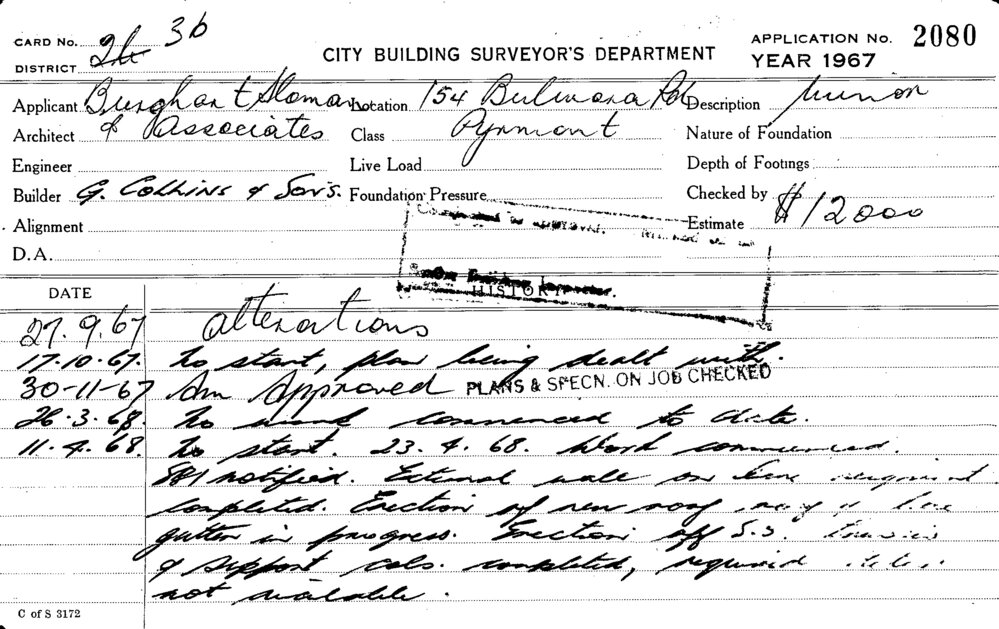 CARD No. 2h 3b
DISTRICT
CITY BUILDING SURVEYOR'S DEPARTMENT
APPLICATION No. 2080
YEAR 1967
Applicant Location 154 Bulwara Rd Description
Architect & Associates Class Pyrmont Nature of Foundation
Engineer Live Load Depth of Footings
Builder G. Collins & Sons. Foundation Pressure Checked by
Alignment Estimate $12000
D.A.
HISTORY
DATE
27.9.67 alterations
17.10.67. No start, plan being dealt with.
30-11-67 Am Approved PLANS & SPECN. ON JOB CHECKED
26.3.68. No work commenced to date.
11.4.68. No start. 23.4.68. Work commenced.
notified. External walls on
completed. Erection of new roof
gutter in progress. Erection off S.S.
& support cols. completed, required
not available.
C of S 3172